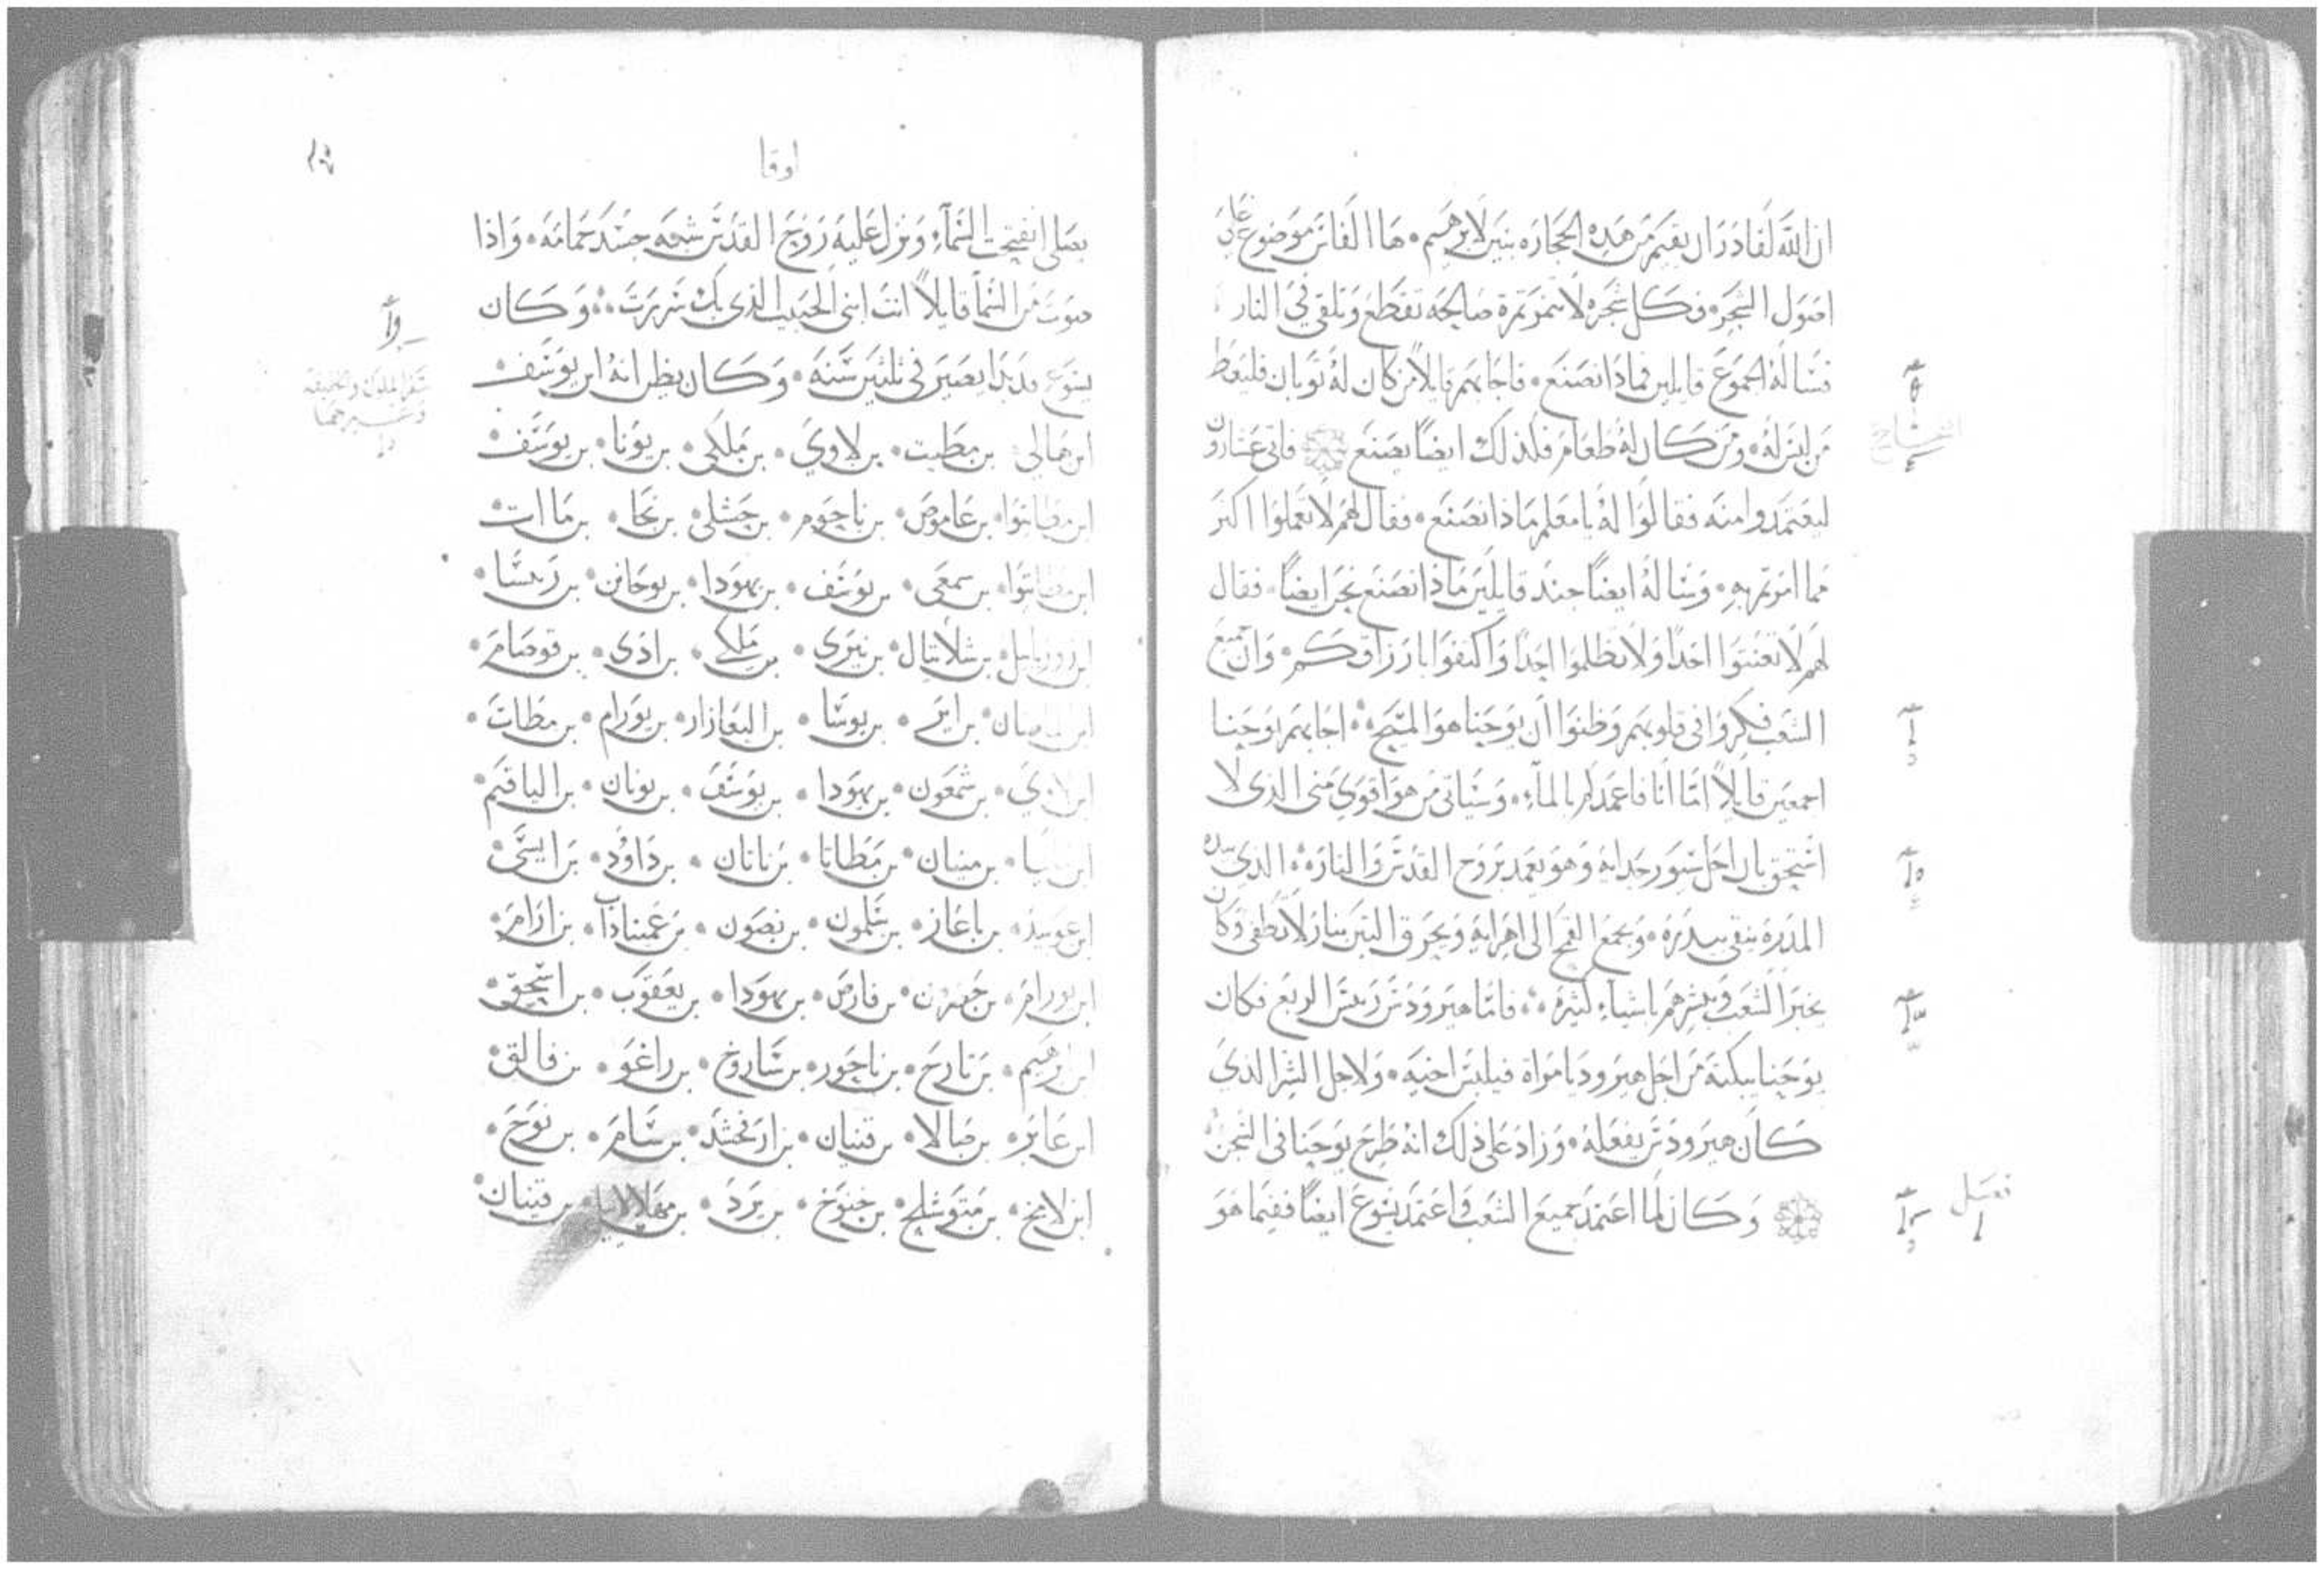 ان الله لقادر ان يقيم من هذه الحجاره بنين لابرهيم ها الفاس موضوع على
اصول الشجره وكل شجره لا تثمر ثمرة صالحه تقطع وتلقى في النار
فساله الجموع قايلين فماذا نصنع فاجابهم قايلا من كان له ثوبان فليعط
من ليس له ومن كان له طعام فكذلك ايضا يصنع فاتى عشارون
ليعتمدوا منه فقالوا له يا معلم ماذا نصنع فقال لهم لا تعملوا اكثر
مما امرتم به وساله ايضا جند قايلين ماذا نصنع نحن ايضا فقال
لهم لا تعنتوا احدا ولا تظلموا احدا واكتفوا بارزاقكم وان جميع
الشعب فكروا في قلوبهم وظنوا ان يوحنا هو المسيح اجابهم يوحنا
اجمعين قايلا اما انا فاعمدكم بالمآء وسياتي من هو اقوى مني الذي لا
استحق ان احل سيور حدايه وهو يعمد بروح القدس والنار الذي بيده
المدره ينقي بيدره ويجمع القمح الى اهرايه ويحرق التبن بنار لا تطفى وكان
يخبر الشعب ويبشرهم باشياء كثيره فاما هيرودس ريس الربع فكان
يوحنا يبكته من اجل هيروديا امراة فيلبس اخيه ولاجل الشر الذي
كان هيرودس يفعله وزاد على ذلك انه طرح يوحنا في السجن
وكان لما اعتمد جميع الشعب واعتمد يسوع ايضا ففيما هو
فصل
لوقا
يصلي انفتحت السمآء ونزل عليه روح القدس شبه جسد حمامه واذا
صوت من السمآ قايلا انت ابني الحبيب الذي بك سررت وكان
يسوع قد بدا يصير في ثلثين سنه وكان يظن انه ابن يوسف
ابن هالي بن مطيت بن لاوي بن ملكي بن يونا بن يوسف
ابن مطاتيوا بن عاموص بن ناحوم بن حسلى بن نجا بن ماات
ابن مطاتيوا بن سمعي بن يوسف بن يهودا بن يوحانن بن ريسا
ابن زوربابيل بن شلاتيال بن نيري بن ملكي بن ادى بن قوصام
بن اير بن يوسا بن اليعازار بن يورام بن مطات
ابن لاوي بن شمعون بن يهودا بن يوسف بن يونان بن الياقيم
بن مينان بن مطاتا بن ناتان بن داود بن ايسى
ابن عوبيذ بن باعاز بن سلمون بن نصون بن عميناداب بن ارام
ابن يورام بن حصرون بن فارص بن يهودا بن يعقوب بن اسحق
ابن ابرهيم بن تارح بن ناحور بن ساروخ بن راغو بن فالق
ابن عابر بن صالا بن قينان بن ارفخشد بن سام بن نوح
ابن لامخ بن متوشلح بن خنوخ بن يرد بن مهلالايل بن قينان